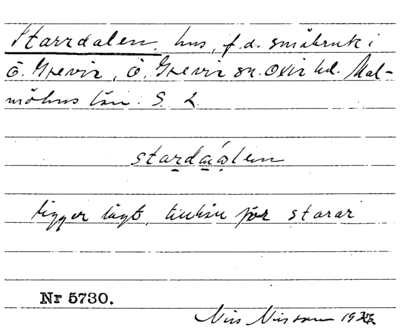 Starrdalen, hus, f.d. småbruk i
Ö. Grevie, Ö. Grevie sn. Oxie hd. Mal-
möhus län. S. L.
stardaalen
ligger lågt, för starar
Nr 5730.
Nils Nilsson